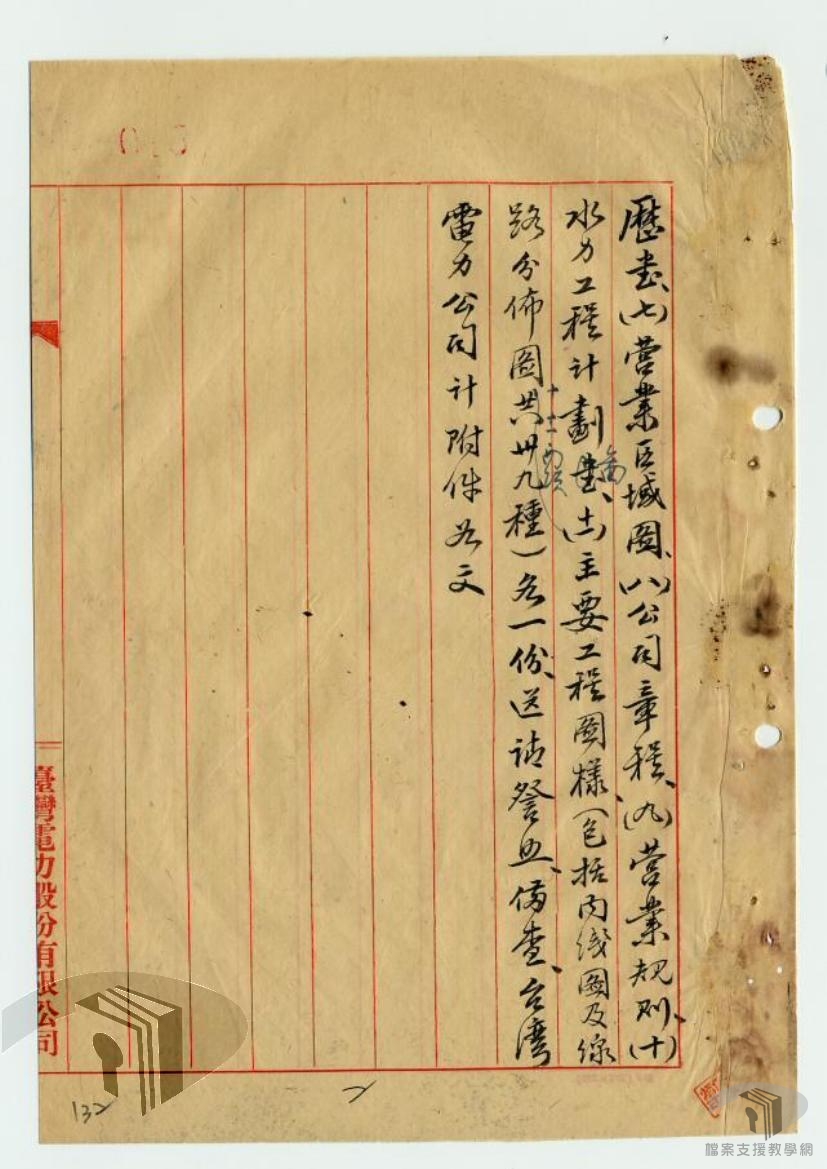 歷書、(七)营業区域图、(八)公司章程、(九)营業規則、(十)
水力工程计劃書、(十一)主要工程图樣(包括内线图及線
路分佈图共卅九種)各一份、送請詧照、備查、台湾
電力公司计附件如文
臺灣電力股份有限公司
132
2
檔案支援教學網